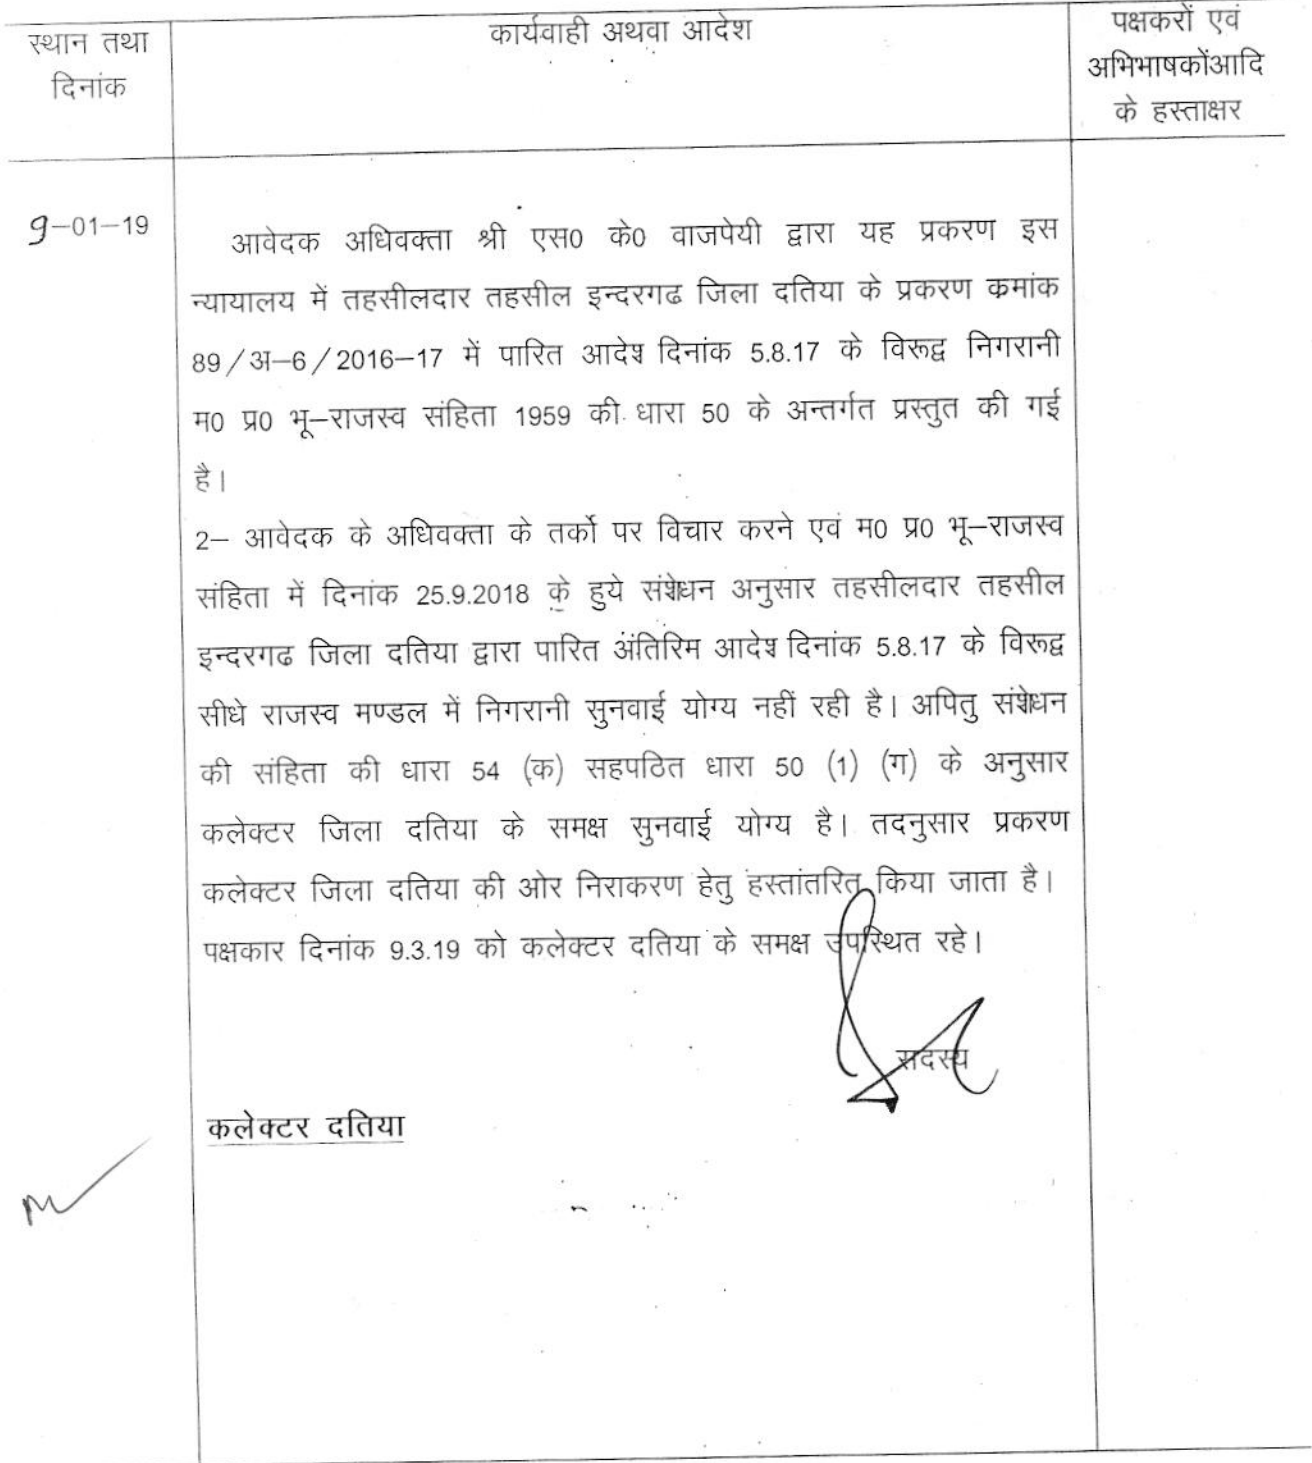 स्थान तथा
दिनांक
कार्यवाही अथवा आदेश
पक्षकरों एवं
अभिभाषकोंआदि
के हस्ताक्षर
9–01–19
आवेदक अधिवक्ता श्री एस0 के0 वाजपेयी द्वारा यह प्रकरण इस
न्यायालय में तहसीलदार तहसील इन्दरगढ जिला दतिया के प्रकरण कमांक
89/अ–6/2016–17 में पारित आदेश दिनांक 5.8.17 के विरूद्व निगरानी
म0 प्र0 भू–राजस्व संहिता 1959 की धारा 50 के अन्तर्गत प्रस्तुत की गई
है।
2– आवेदक के अधिवक्ता के तर्को पर विचार करने एवं म0 प्र0 भू–राजस्व
संहिता में दिनांक 25.9.2018 के हुये संशेधन अनुसार तहसीलदार तहसील
इन्दरगढ जिला दतिया द्वारा पारित अंतिरिम आदेश दिनांक 5.8.17 के विरूद्व
सीधे राजस्व मण्डल में निगरानी सुनवाई योग्य नहीं रही है। अपितु संशेधन
की संहिता की धारा 54 (क) सहपठित धारा 50 (1) (ग) के अनुसार
कलेक्टर जिला दतिया के समक्ष सुनवाई योग्य है। तदनुसार प्रकरण
कलेक्टर जिला दतिया की ओर निराकरण हेतु हस्तांतरित किया जाता है।
पक्षकार दिनांक 9.3.19 को कलेक्टर दतिया के समक्ष उपस्थित रहे।
सदस्य
कलेक्टर दतिया